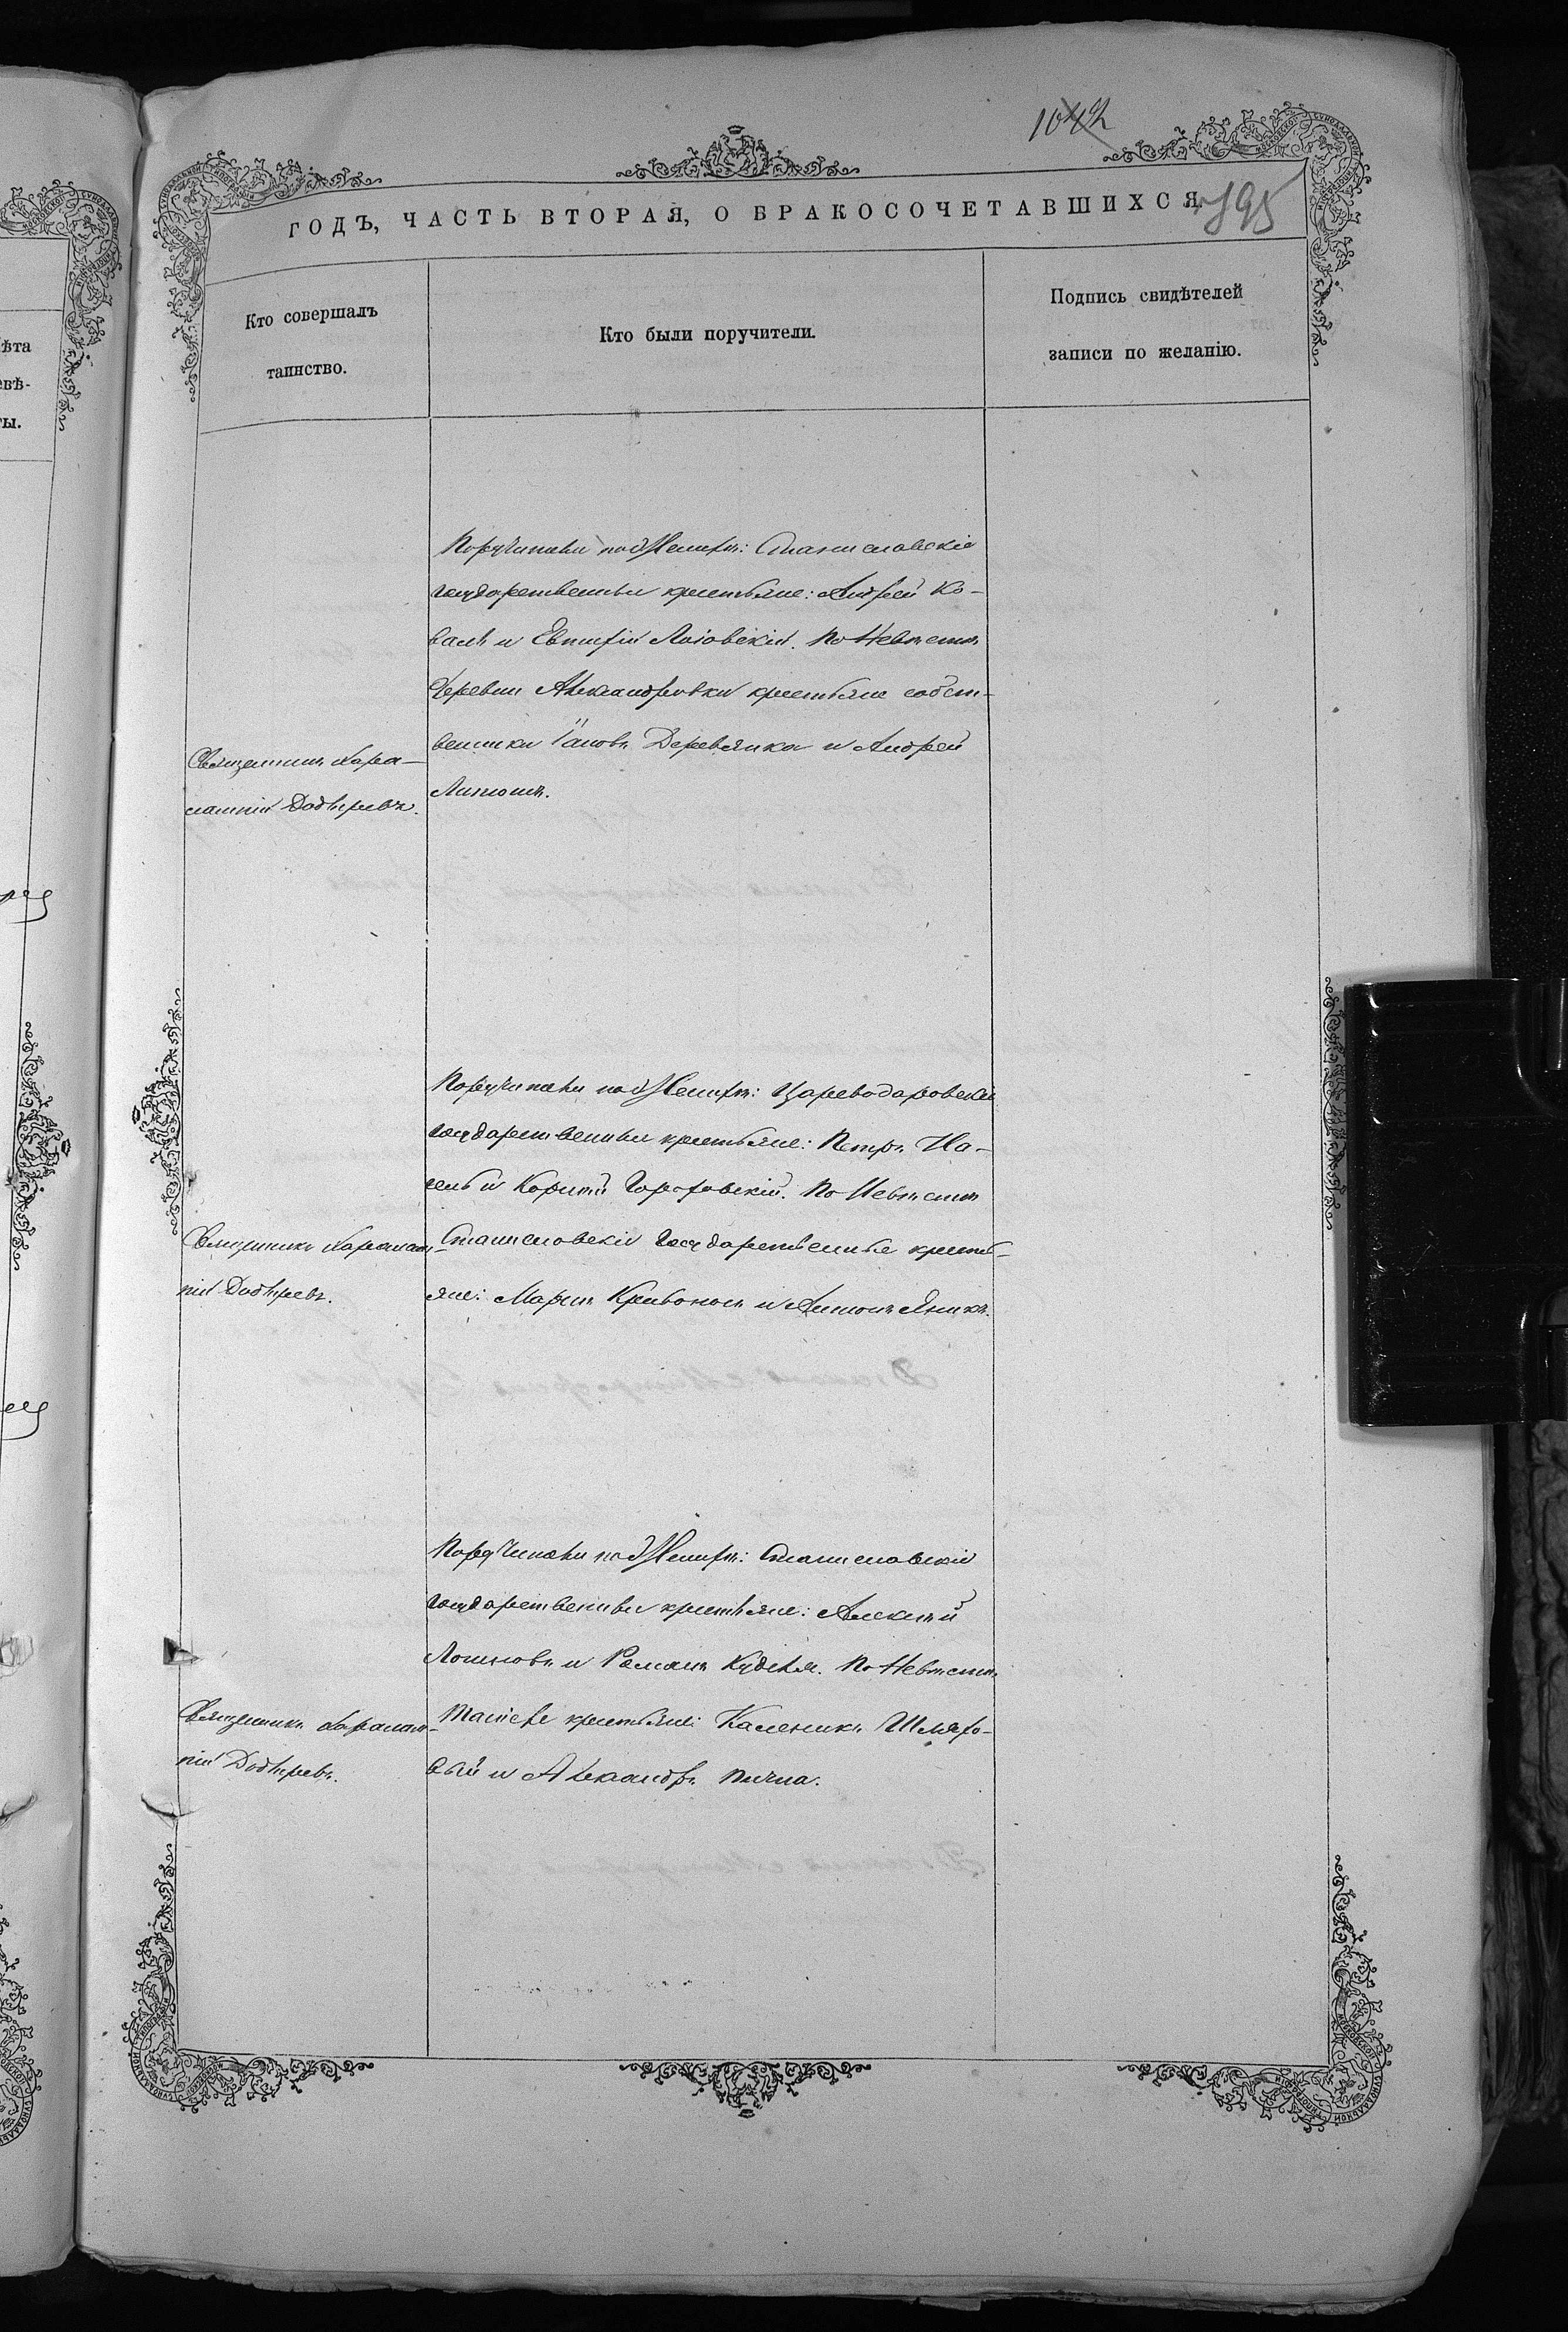 1042
ГОДЪ, ЧАСТЬ ВТОРАЯ, О БРАКОСОЧЕТАВШИХСЯ
895
Кто совершалъ
таинство.
Кто были поручители.
Подпись свидѣтелей
записи по желанію.
ѣта
евѣ-
ты.
Поручители по Женихѣ: Станиславскіе
государственные крестьяне: Андрей Ко-
валь и Евтихій По Невѣстѣ
деревни Александровки крестьяне собст-
венники Іаковъ Деревянка и Андрей
Священникъ Хара-
лампій
Поручители по Женихѣ: Цареводаровскіе
государственные крестьяне: Петръ Ча-
и Гороховскій. По Невѣстѣ
Станиславскіе государственные кресть-
яне: Маркъ Кривоносъ и Антонъ Яникъ.
Священникъ Харалам-
пій
Поручители по Женихѣ: Станиславскіе
государственные крестьяне: Алексѣй
Логиновъ и Романъ Кудѣля. По Невѣстѣ
Такіе же крестьяне: Каленикъ Шляхо-
вый и Александръ
Священникъ Харалам-
пій